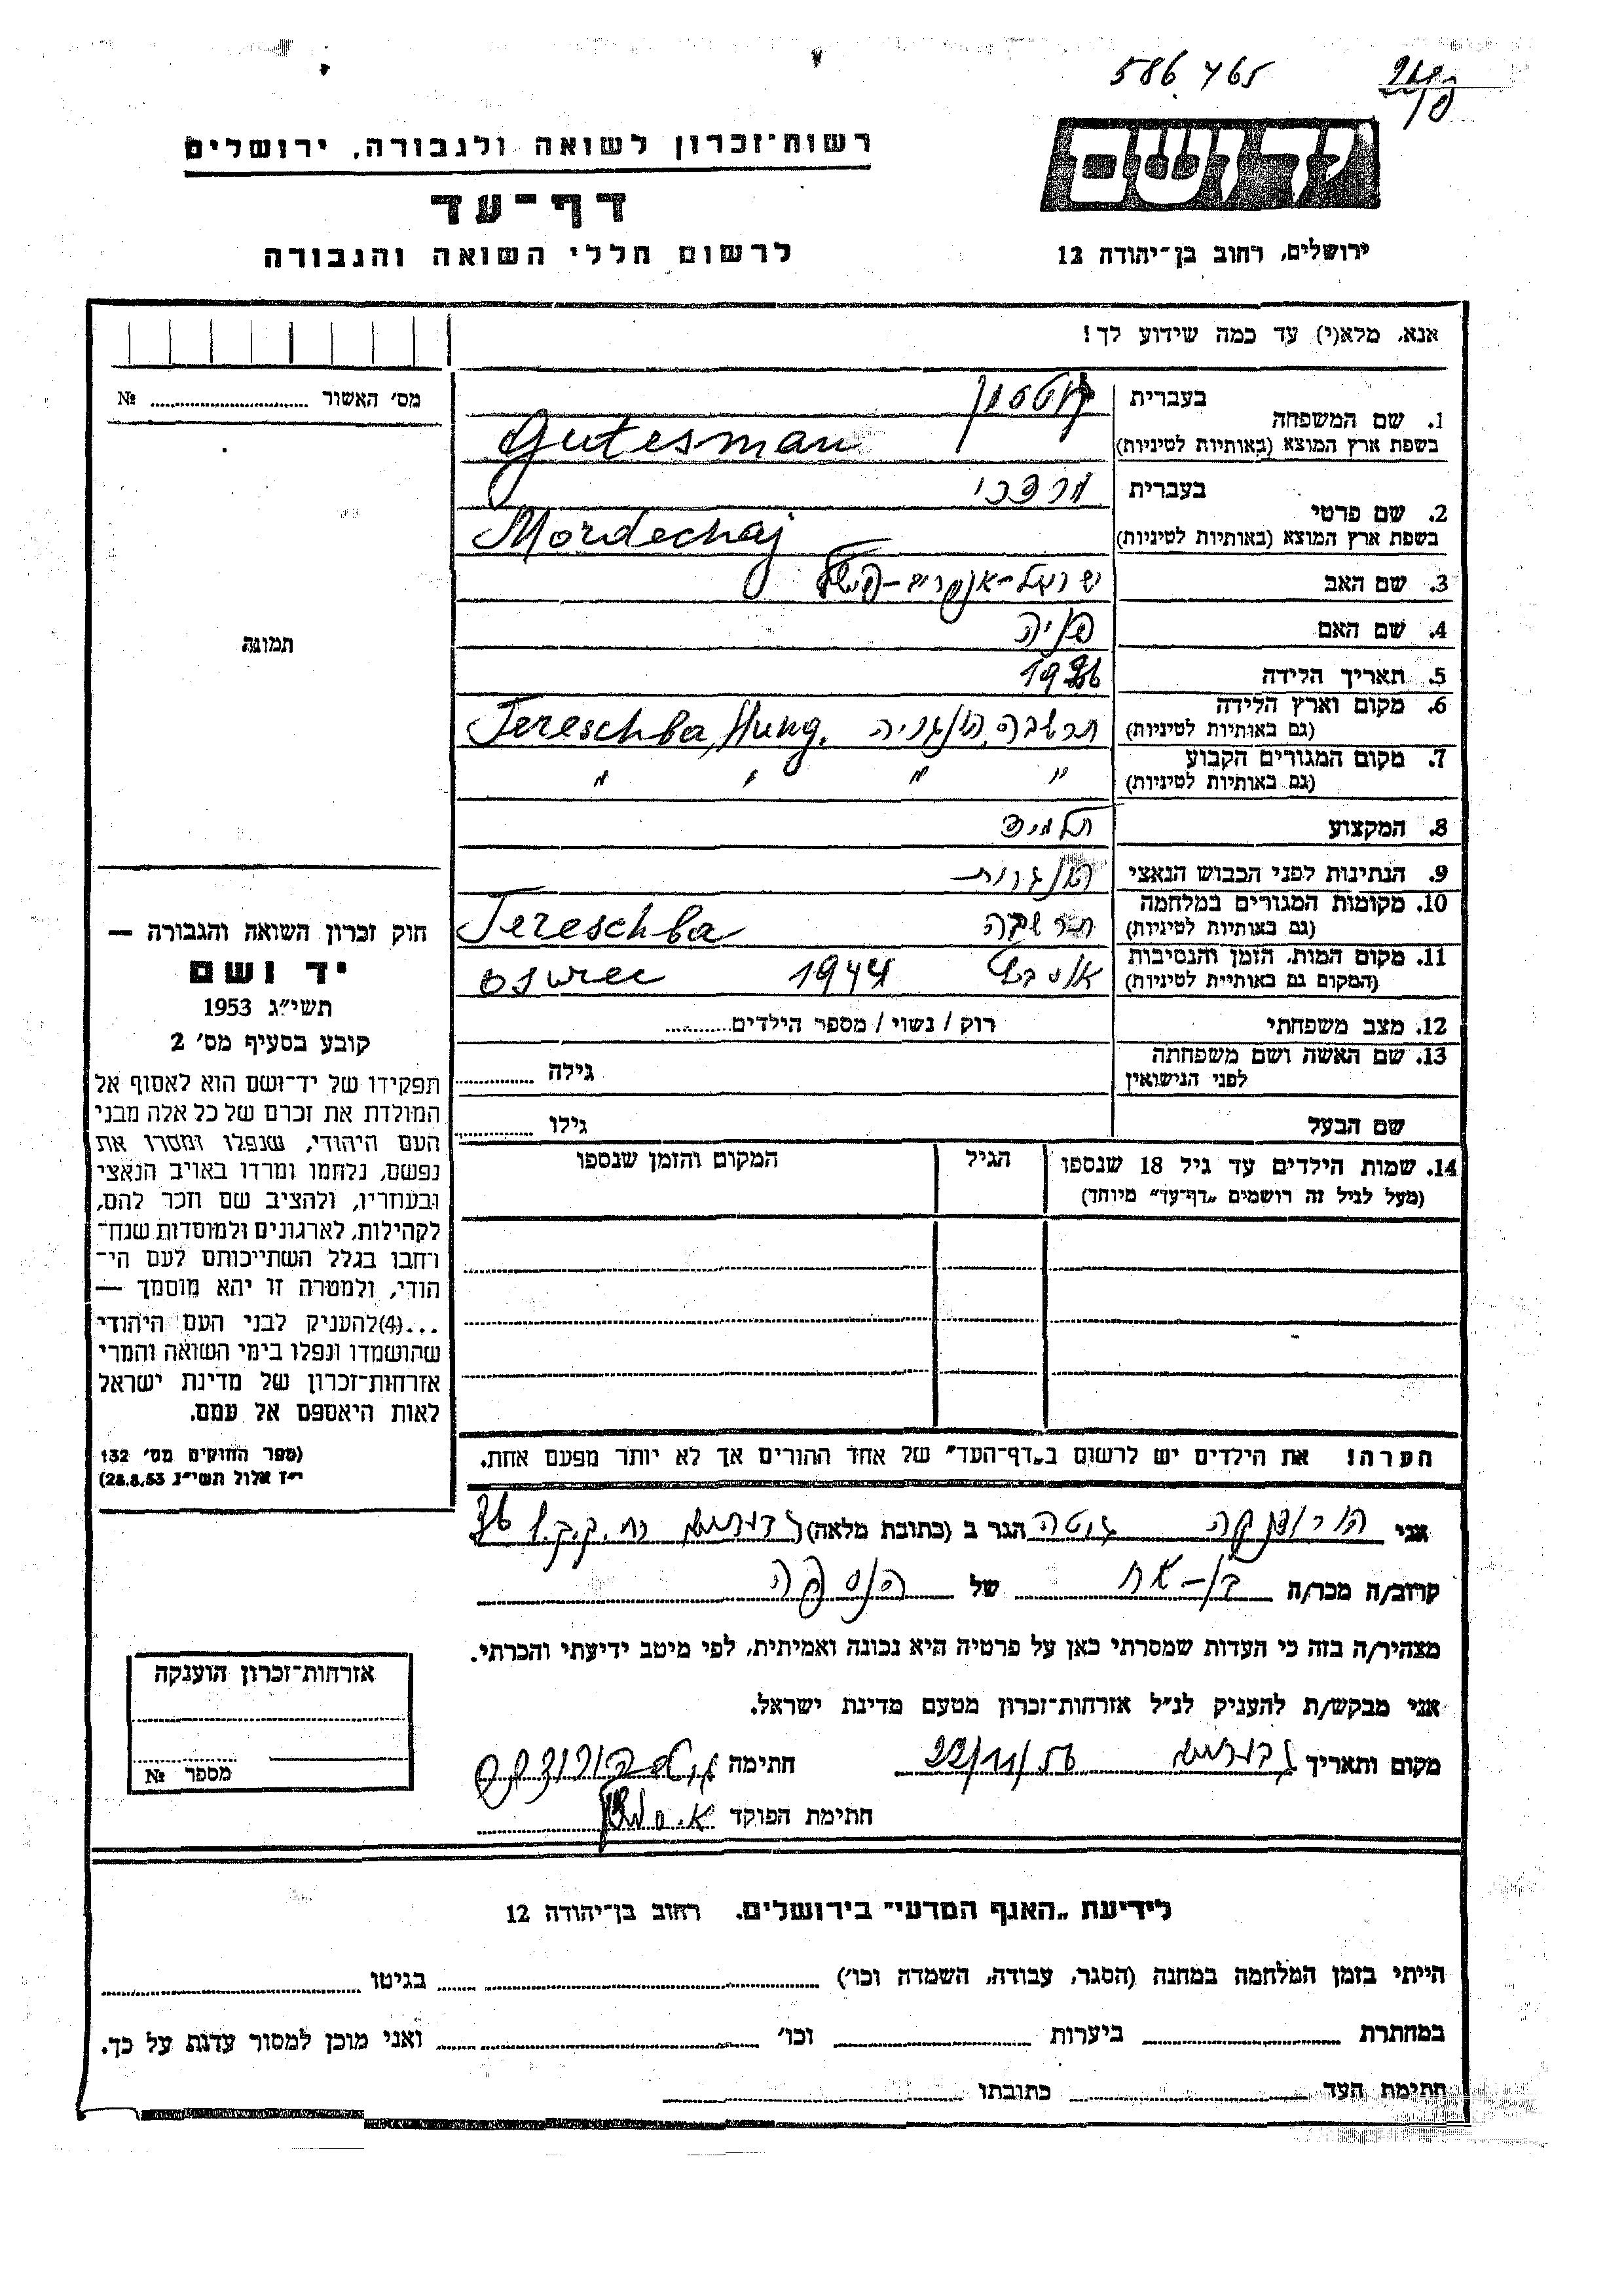 586 465
רשות־זכרון לשואה ולגבורה, ירושלים
יד ושם
דף־עד
לרשום חללי השואה והגבורה
ירושלים, רחוב בן־יהודה 12
אנא, מלא(י) עד כמה שידוע לך!
מס' האשור № 
1. שם המשפחה
בעברית גוטסמן
בשפת ארץ המוצא (באותיות לטיניות) Gutesman
2. שם פרטי
בעברית מרדכי
בשפת ארץ המוצא (באותיות לטיניות) Mordechaj
3. שם האב ישראל-
4. שם האם פניה
5. תאריך הלידה 1926
6. מקום וארץ הלידה תרשבה, הונגריה Tereschba, Hung.
(גם באותיות לטיניות)
7. מקום המגורים הקבוע " " " "
(גם באותיות לטיניות)
8. המקצוע תלמיד
9. הנתינות לפני הכבוש הנאצי הונגרית
10. מקומות המגורים במלחמה תרשבה Tereschba
(גם באותיות לטיניות)
11. מקום המות, הזמן והנסיבות 1944
(המקום גם באותיות לטיניות)
12. מצב משפחתי רוק / נשוי / מספר הילדים
13. שם האשה ושם משפחתה לפני הנישואין גילה
שם הבעל גילו
14. שמות הילדים עד גיל 18 שנספו הגיל המקום והזמן שנספו
(מעל לגיל זה רושמים „דף־עד" מיוחד)
הערה! את הילדים יש לרשום ב„דף־העד" של אחד ההורים אך לא יותר מפעם אחת.
תמונה
חוק זכרון השואה והגבורה —
יד ושם
תשי"ג 1953
קובע בסעיף מס' 2
תפקידו של יד־ושם הוא לאסוף אל
המולדת את זכרם של כל אלה מבני
העם היהודי, שנפלו ומסרו את
נפשם, נלחמו ומרדו באויב הנאצי
ובעוזריו, ולהציב שם וזכר להם,
לקהילות, לארגונים ולמוסדות שנח־
רחבו בגלל השתייכותם לעם הי־
הודי, ולמטרה זו יהא מוסמך —
...(4)להעניק לבני העם היהודי
שהושמדו ונפלו בימי השואה והמרי
אזרחות־זכרון של מדינת ישראל
לאות היאספם אל עמם.
(ספר החוקים מס' 132
י"ז אלול תשי"ג 28.8.53)
אני גיטה הגר ב (כתובת מלאה) רח. ק.ק.ל
קרוב/ה מכר/ה בן-אח של
מצהיר/ה בזה כי העדות שמסרתי כאן על פרטיה היא נכונה ואמיתית, לפי מיטב ידיעתי והכרתי.
אני מבקש/ת להעניק לנ"ל אזרחות־זכרון מטעם מדינת ישראל.
מקום ותאריך 22/11/56 חתימה
חתימת הפוקד
אזרחות־זכרון הוענקה
מספר №
לידיעת „האגף המדעי" בירושלים, רחוב בן־יהודה 12
הייתי בזמן המלחמה במחנה (הסגר, עבודה, השמדה וכו') בגיטו
במחתרת ביערות וכו' ואני מוכן למסור עדות על כך.
חתימת העד כתובתו